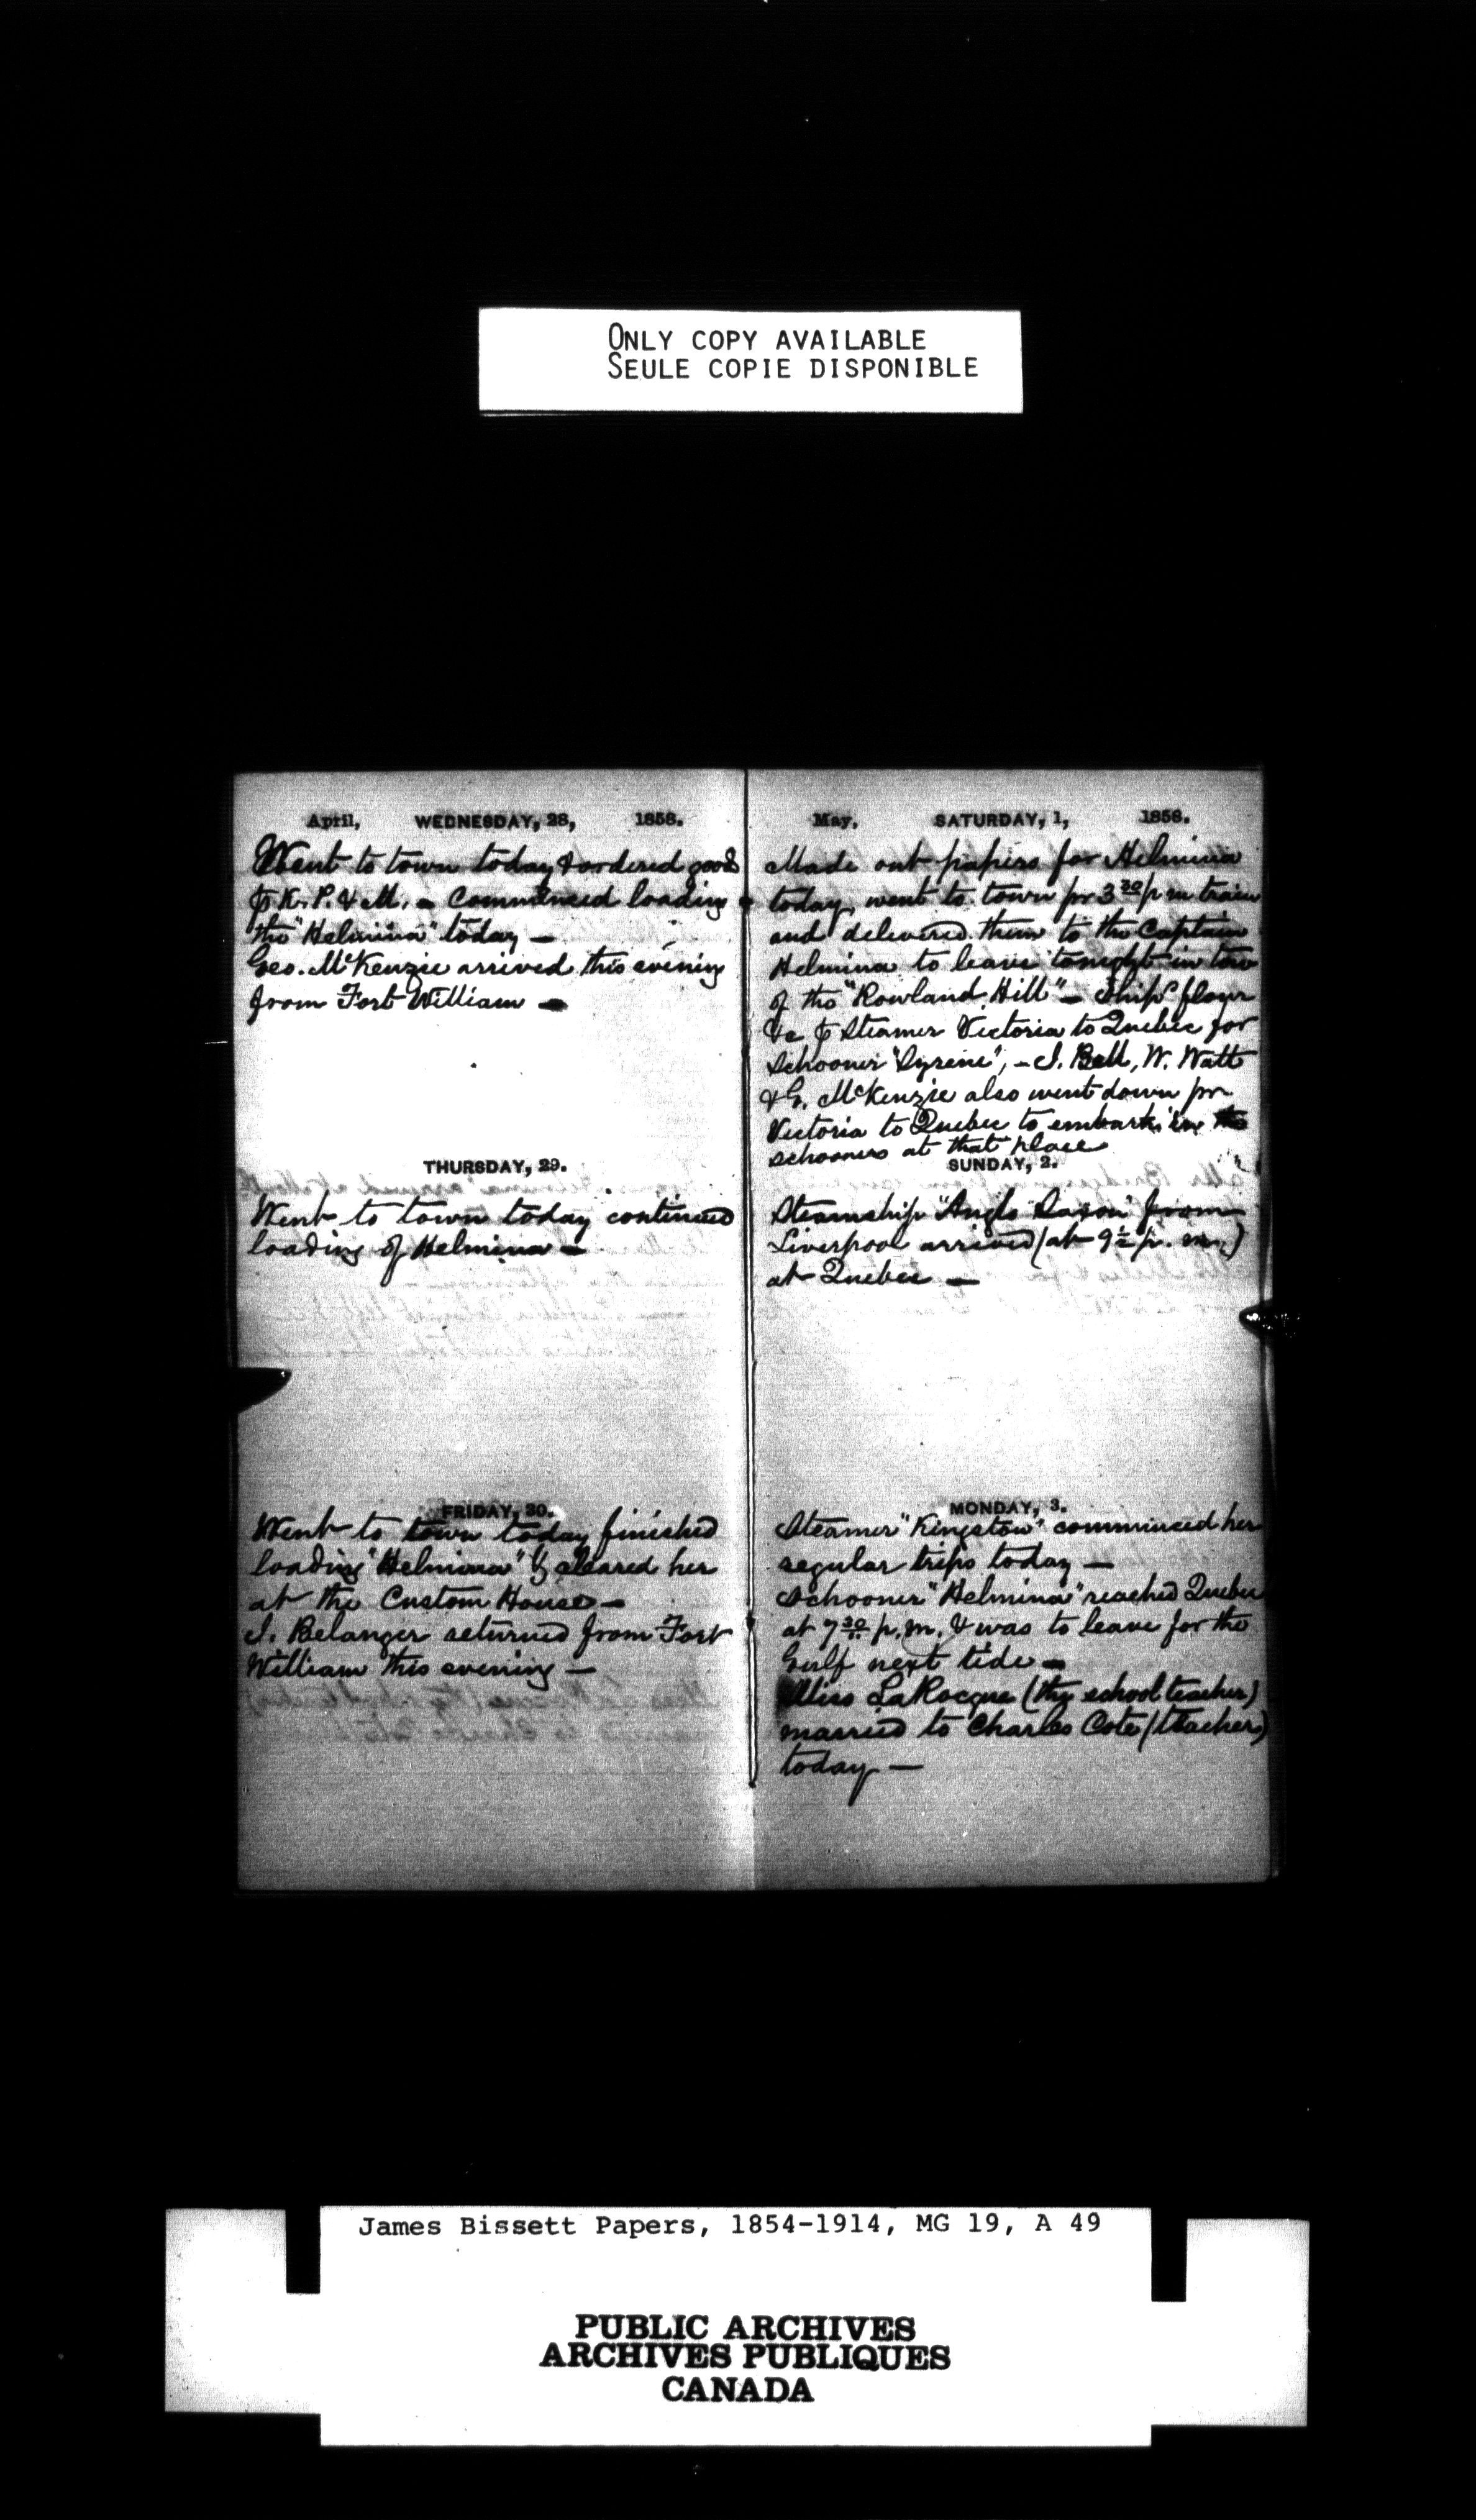 ONLY COPY AVAILABLE
SEULE COPIE DISPONIBLE
April, WEDNESDAY, 28, 1858.
Went to town today & ordered goods
K. P. & M. – Commenced loading
the "Helmina" today –
Geo. McKenzie arrived this evening
from Fort William –
THURSDAY, 29.
Went to town today continued
loading of Helmina –
FRIDAY, 30.
Went to town today finished
loading "Helmina" & cleared her
at the Custom House –
J. Belanger returned from Fort
William this evening –
May, SATURDAY, 1, 1858.
Made out papers for Helmina
today, went to town pr 3 30 p m train
and delivered them to the Captain
Helmina to leave tonight in tow
of the "Rowland Hill" – Shipd flour
&c Steamer Victoria to Quebec for
Schooner "Syrene", – J. Bell, W. Watt
& G. McKenzie also went down pr
Victoria to Quebec to embark in the
schooners at that place
SUNDAY, 2.
Steamship "Anglo Saxon" from
Liverpool arrived (at 9½ p. m.)
at Quebec –
MONDAY, 3.
Steamer "Kingston" commenced her
regular trips today –
Schooner "Helmina" reached Quebec
at 7 30 p.m. & was to leave for the
Gulf next tide –
Miss LaRocque (the school teacher)
married to Charles Cote (teacher)
today –
James Bissett Papers, 1854-1914, MG 19, A 49
PUBLIC ARCHIVES
ARCHIVES PUBLIQUES
CANADA